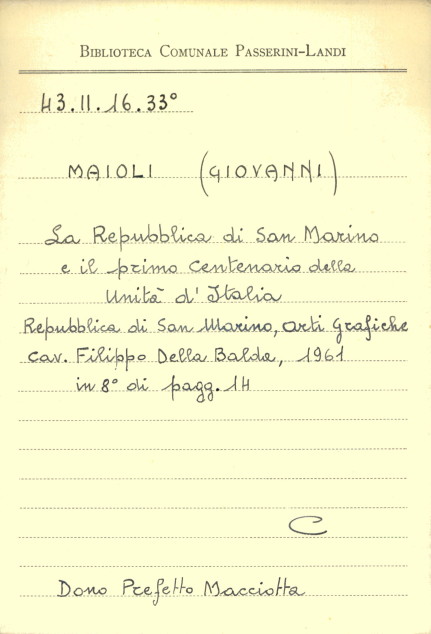 BIBLIOTECA COMUNALE PASSERINI-LANDI
43.II.16.33°
MAIOLI (GIOVANNI)
La Repubblica di San Marino
e il primo centenario della
Unità d'Italia
Repubblica di San Marino, Arti Grafiche
Cav. Filippo Della Balda, 1961
in 8° di pagg. 14
C
Dono Prefetto Macciotta